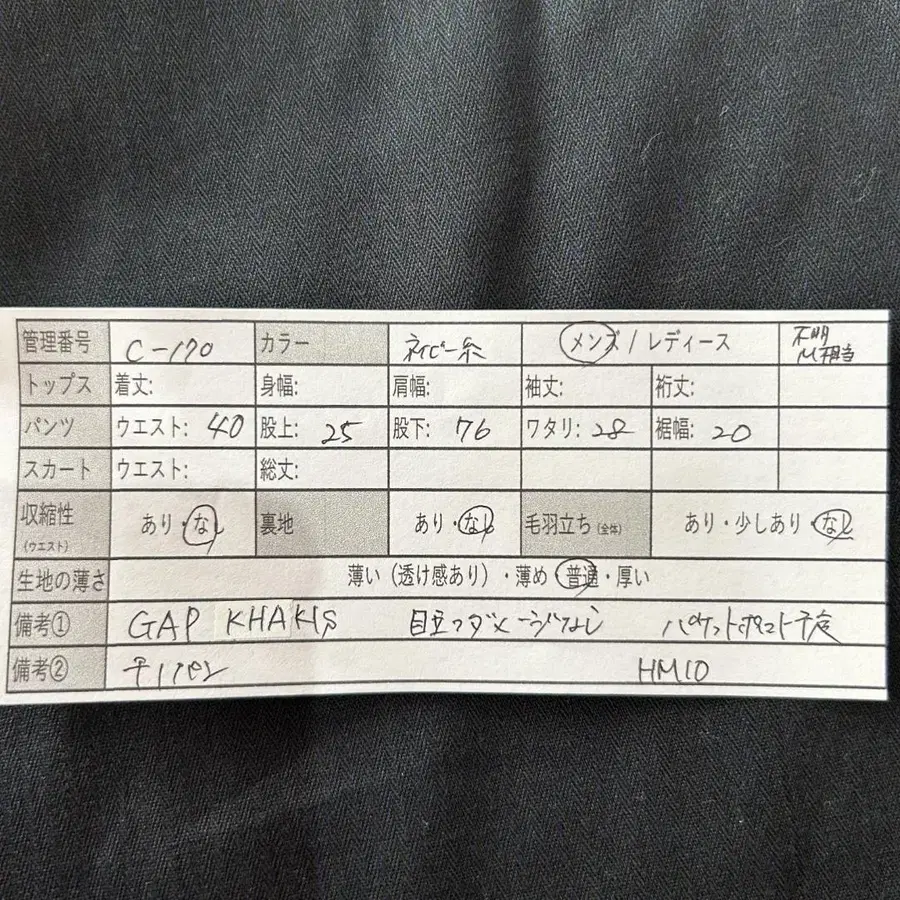 管理番号 C-170 カラー ネイビー系 メンズ / レディース 不明 M相当
トップス 着丈: 身幅: 肩幅: 袖丈: 裄丈:
パンツ ウエスト: 40 股上: 25 股下: 76 ワタリ: 28 裾幅: 20
スカート ウエスト: 総丈:
収縮性 (ウエスト) あり・なし 裏地 あり・なし 毛羽立ち (全体) あり・少しあり・なし
生地の薄さ 薄い (透け感あり)・薄め・普通・厚い
備考① GAP KHAKIS 目立つダメージなし パケットポスト予定
備考② チノパン HM10